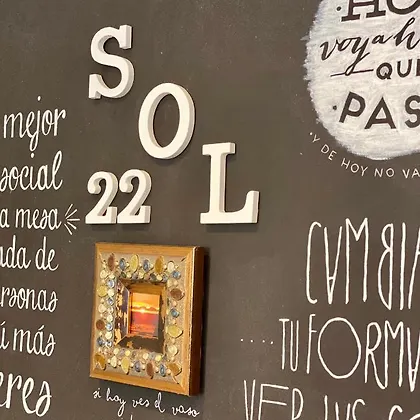 mejor
social
a mesa
ada de
ersonas
ú más
eres
SOL
22
si hoy ves el vaso
HO
voy a h
QU
PAS
·Y DE HOY NO VA
CAMBIA
....TU FORMA
VER LAS C